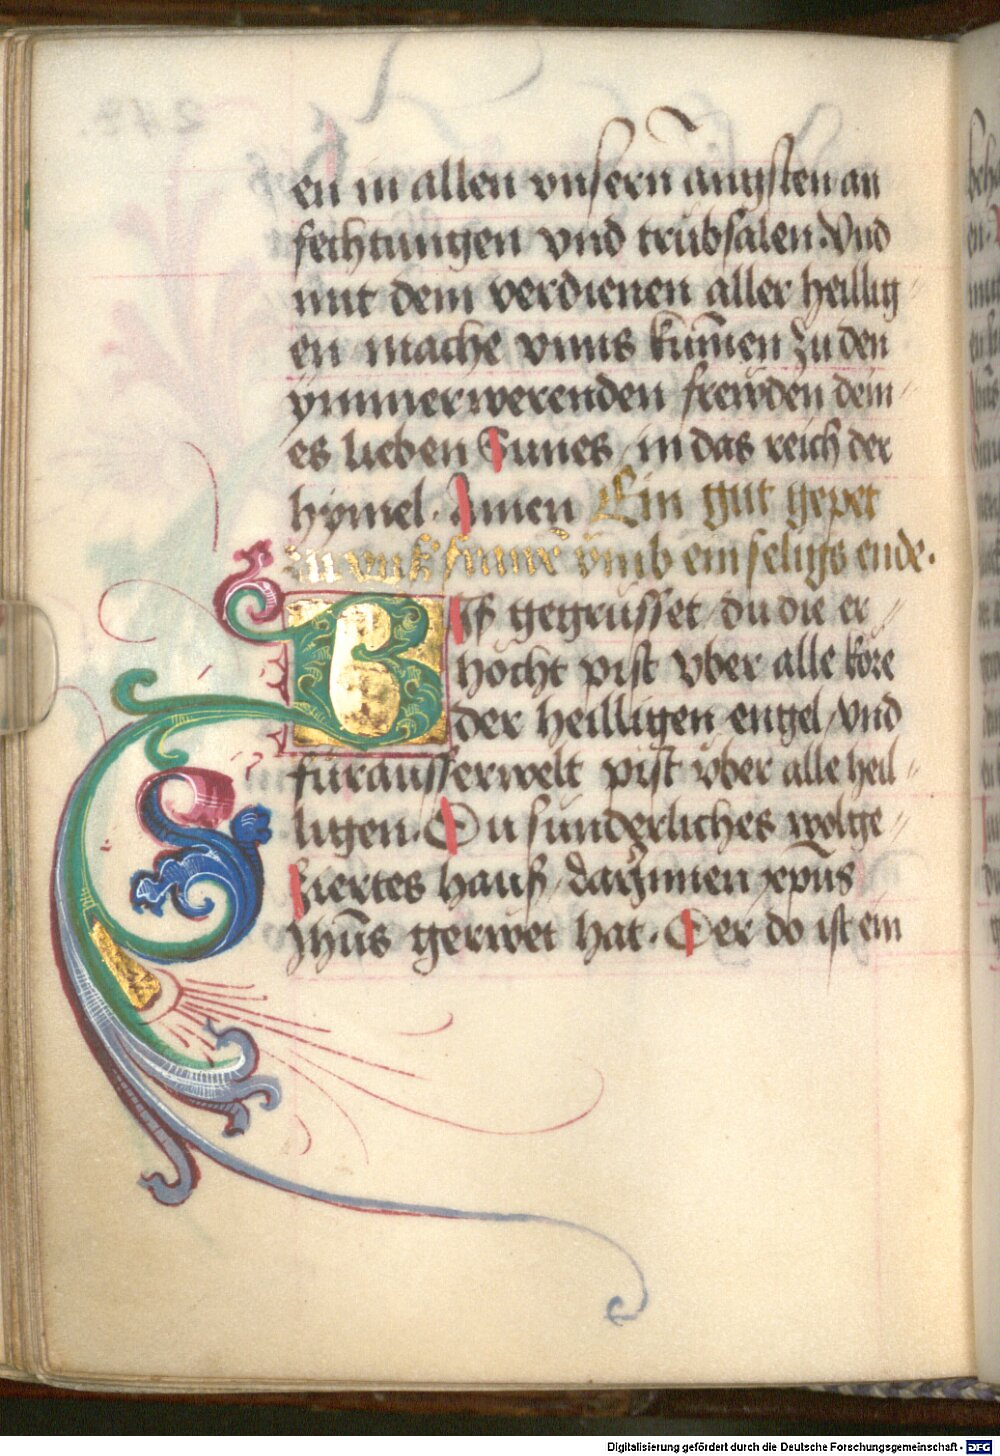 en in allen vnsern angsten an
fechtungen vnd trubsalen. Vnd
mit dem verdienen aller heillig
en mache vnns kumen zu den
ymmerwerenden frewden dein
es lieben Sunes / in das reich der
hymel. Amen Ein gut gepet
vmb ein seligs ende.
Bis gegrusset / du die er
hocht pist vber alle kore
der heilligen engel / vnd
furausserwelt pist vber alle heil
ligen. Du sunderliches wolge
ziertes hauß / darzinnen xpūs
Jhūs gerwet hat. Der do ist ein
Digitalisierung gefördert durch die Deutsche Forschungsgemeinschaft - DFG